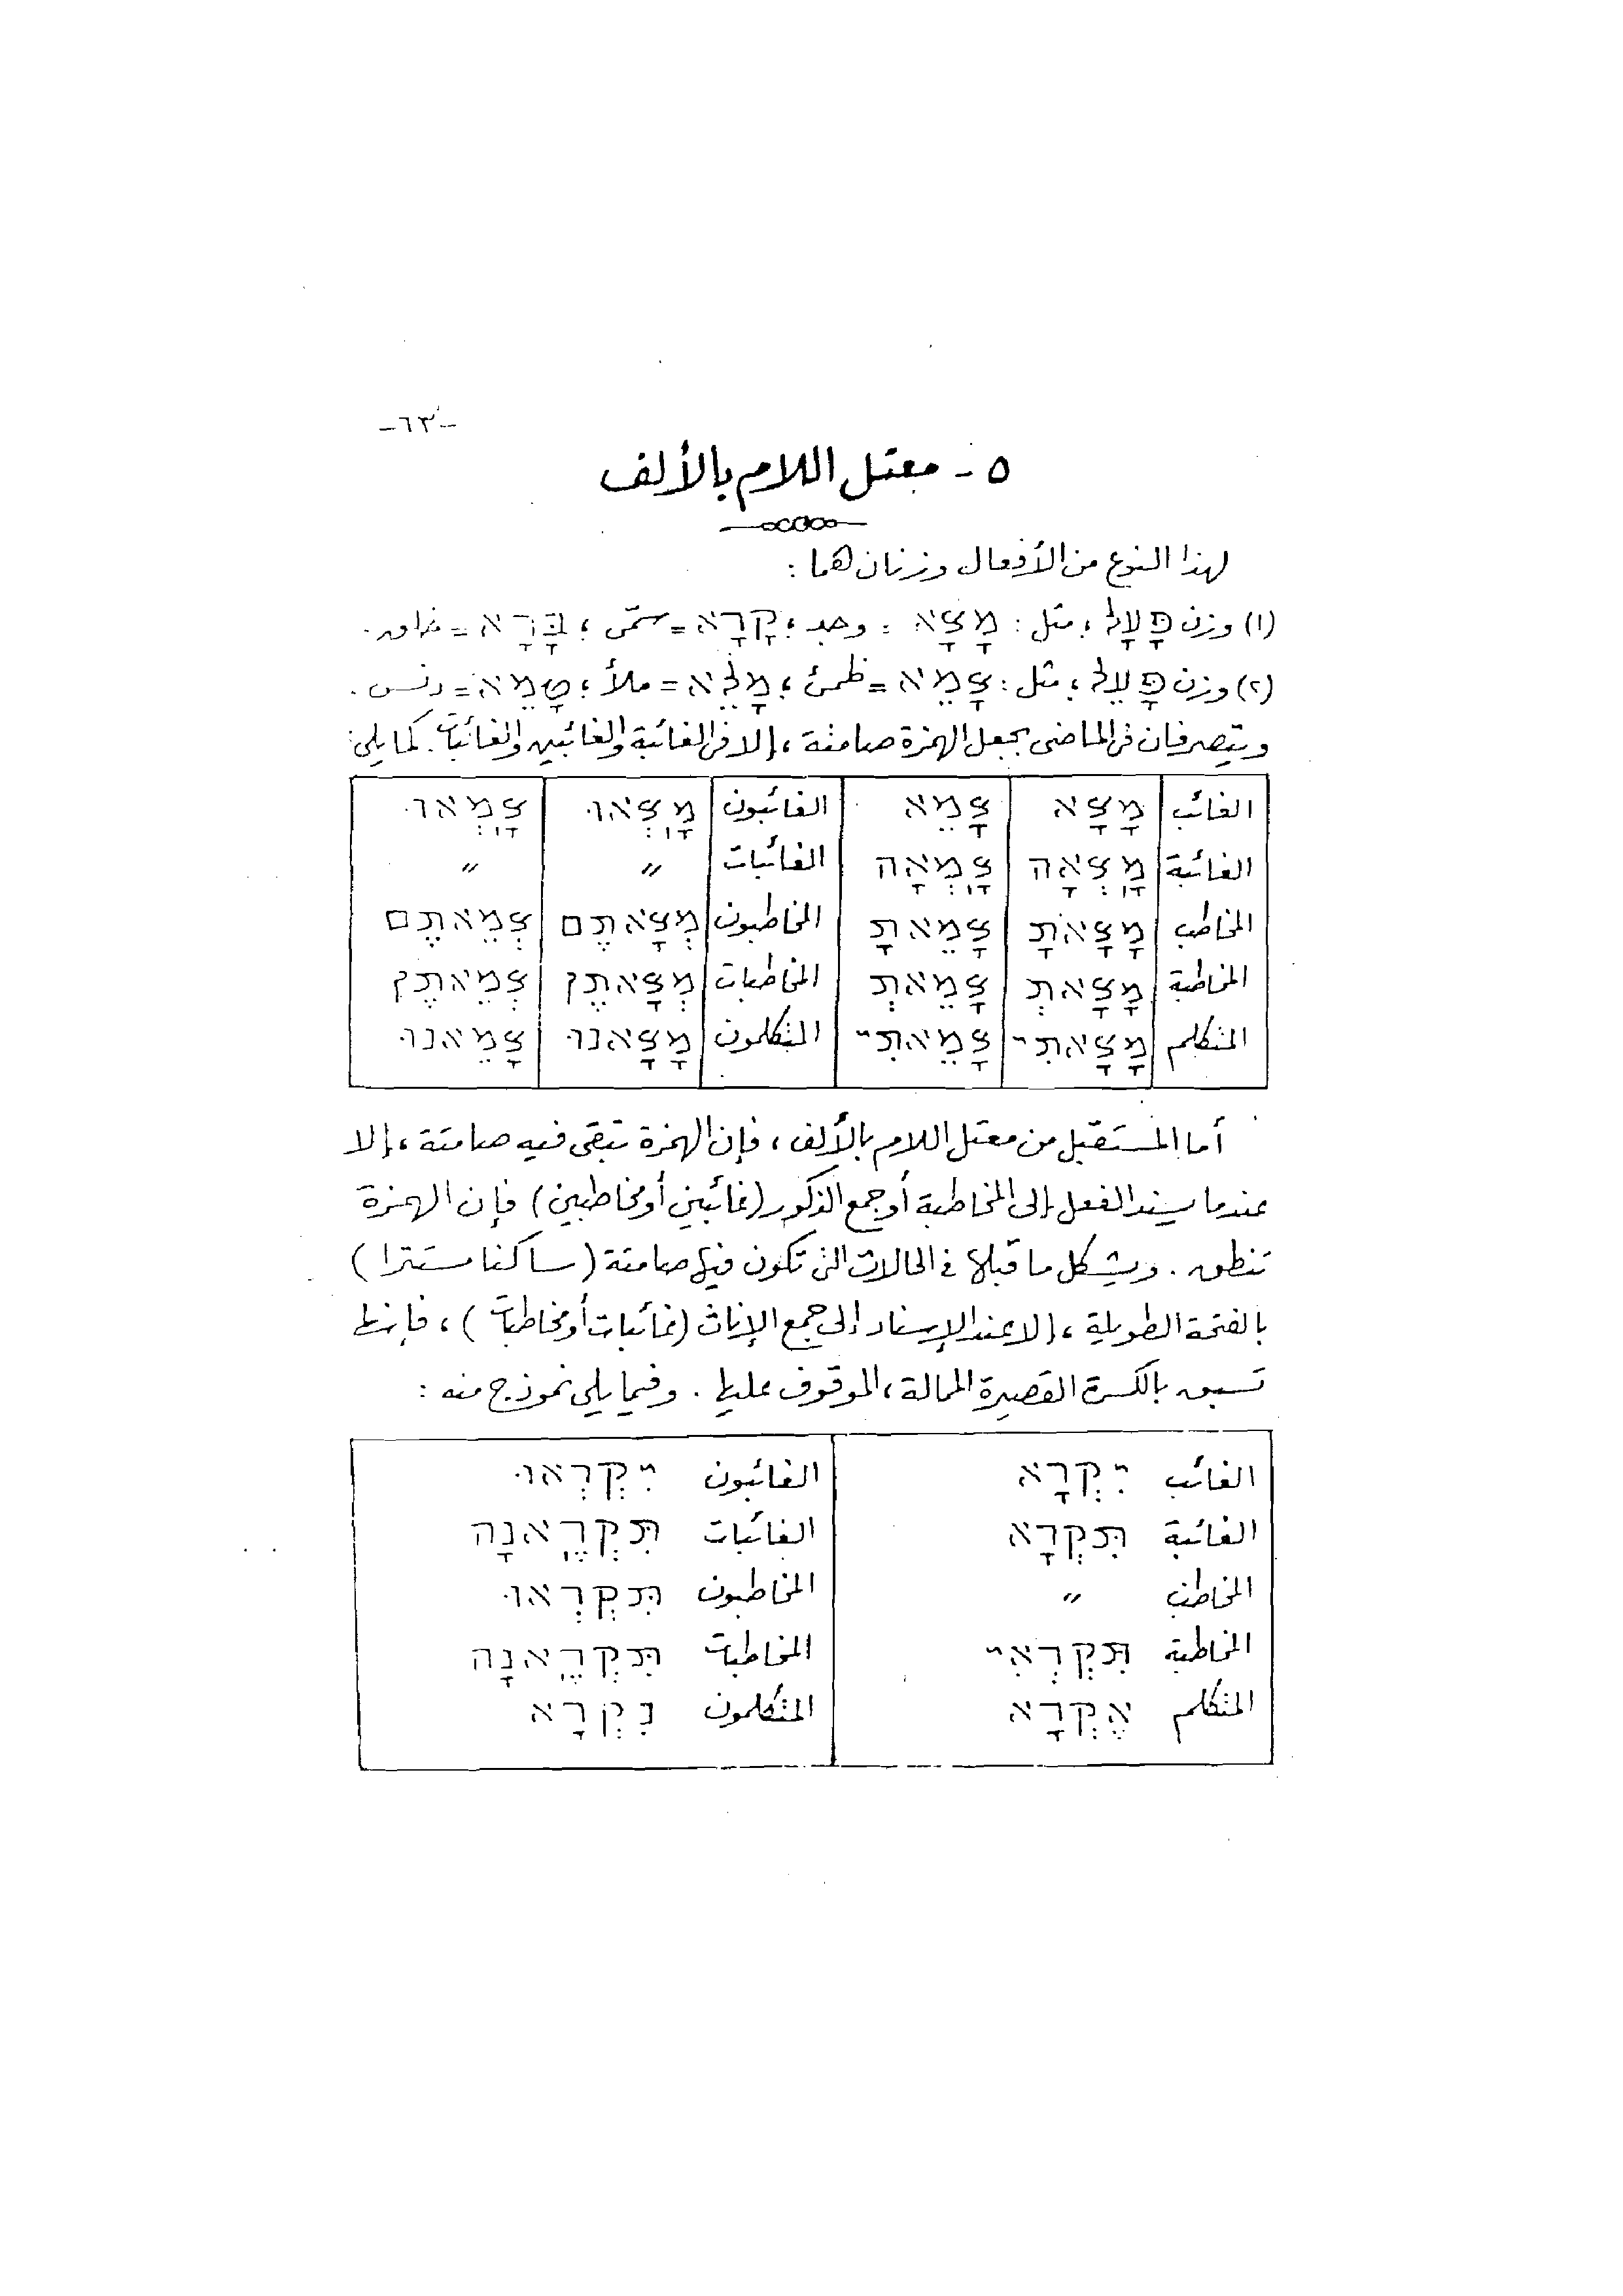 -٦٣-
٥ - معتل اللام بالألف
لهذا النوع من الأفعال وزنان هما :
(١) وزن פָּעָל ، مثل : מָצָא = وجد ، קָרָא = سمّى ، בָּרָא = خلق .
(٢) وزن פָּעֵל ، مثل : צָמֵא = ظمئ ، מָלֵא = ملأ ، טָמֵא = دنس .
ويتصرفان فى الماضى بجعل الهمزة صامتة ، إلا فى الغائبة والغائبين والغائبات . كما يلى :
الغائب מָצָא צָמֵא الغائبون מָצְאוּ צָמְאוּ
الغائبة מָצְאָה צָמְאָה الغائبات 〃 〃
المخاطب מָצָאתָ צָמֵאתָ المخاطبون מְצָאתֶם צְמֵאתֶם
المخاطبة מָצָאתְ צָמֵאתְ المخاطبات מְצָאתֶן צְמֵאתֶן
المتكلم מָצָאתִי צָמֵאתִי المتكلمون מָצָאנוּ צָמֵאנוּ
أما المستقبل من معتل اللام بالألف ، فإن الهمزة تبقى فيه صامتة ، إلا
عندما يسند الفعل إلى المخاطبة أو جمع الذكور (غائبين أو مخاطبين) فإن الهمزة
تنطق . ويشكل ما قبلها فى الحالات التى تكون فيها صامتة (ساكنا مستترا)
بالفتحة الطويلة ، إلا عند الإسناد إلى جمع الإناث (غائبات أو مخاطبات) ، فإنها
تسبق بالكسرة القصيرة الممالة ، الموقوف عليها . وفيما يلى نموذج منه :
الغائب יִקְרָא الغائبون יִקְרְאוּ
الغائبة תִּקְרָא الغائبات תִּקְרֶאנָה
المخاطب 〃 المخاطبون תִּקְרְאוּ
المخاطبة תִּקְרְאִי المخاطبات תִּקְרֶאנָה
المتكلم אֶקְרָא المتكلمون נִקְרָא